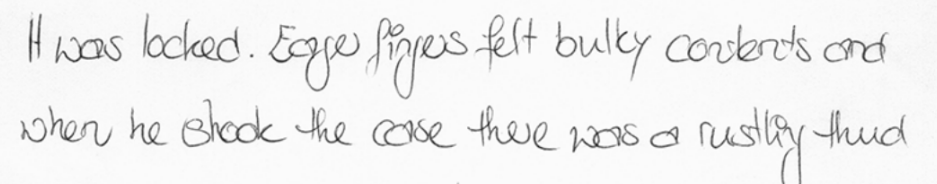 It was locked. Eager fingers felt bulky contents and
when he shook the case there was a rustling thud